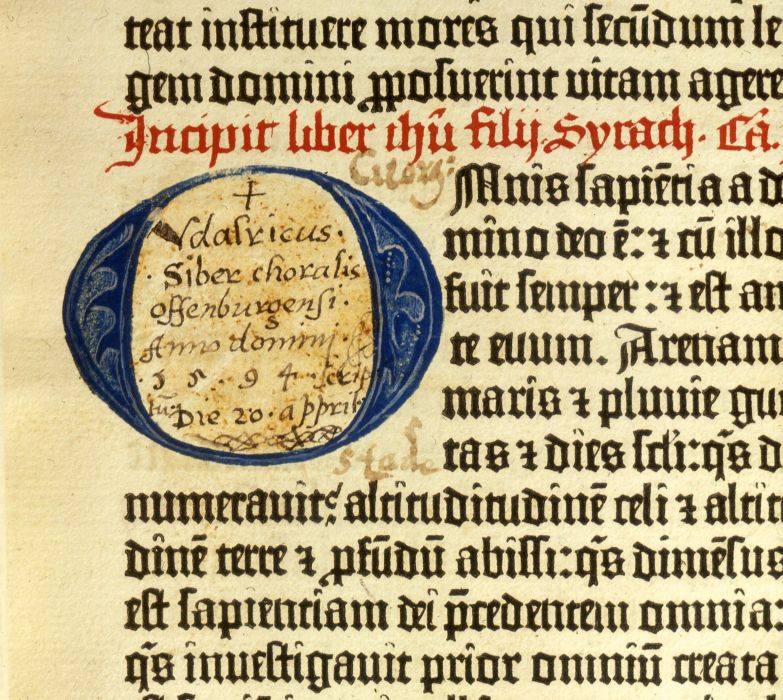 teat instituere mores qui secūdum le
gem domini ꝓposuerint vitam agere
Incipit liber ihū filij Syrach. Cā.
Georg:
✝
Vdalricus.
Siber choralis
offenburgensi.
Anno domini
1 5 9 4 scrip
tū Die 20. appril
stade
Mnis sapiētia a d
mino deo ē: ⁊ cū illo
fuit semper: ⁊ est an
te euum. Arenam
maris ⁊ pluuie gu
tas ⁊ dies scłi: q̄s d
numerauit: altituditudinē celi ⁊ altit
dinē terre ⁊ ꝓfūdū abissi: q̄s dimēsus
est sapientiam dei p̄cedentem omnia:
q̄s inuestigauit prior omniū creata